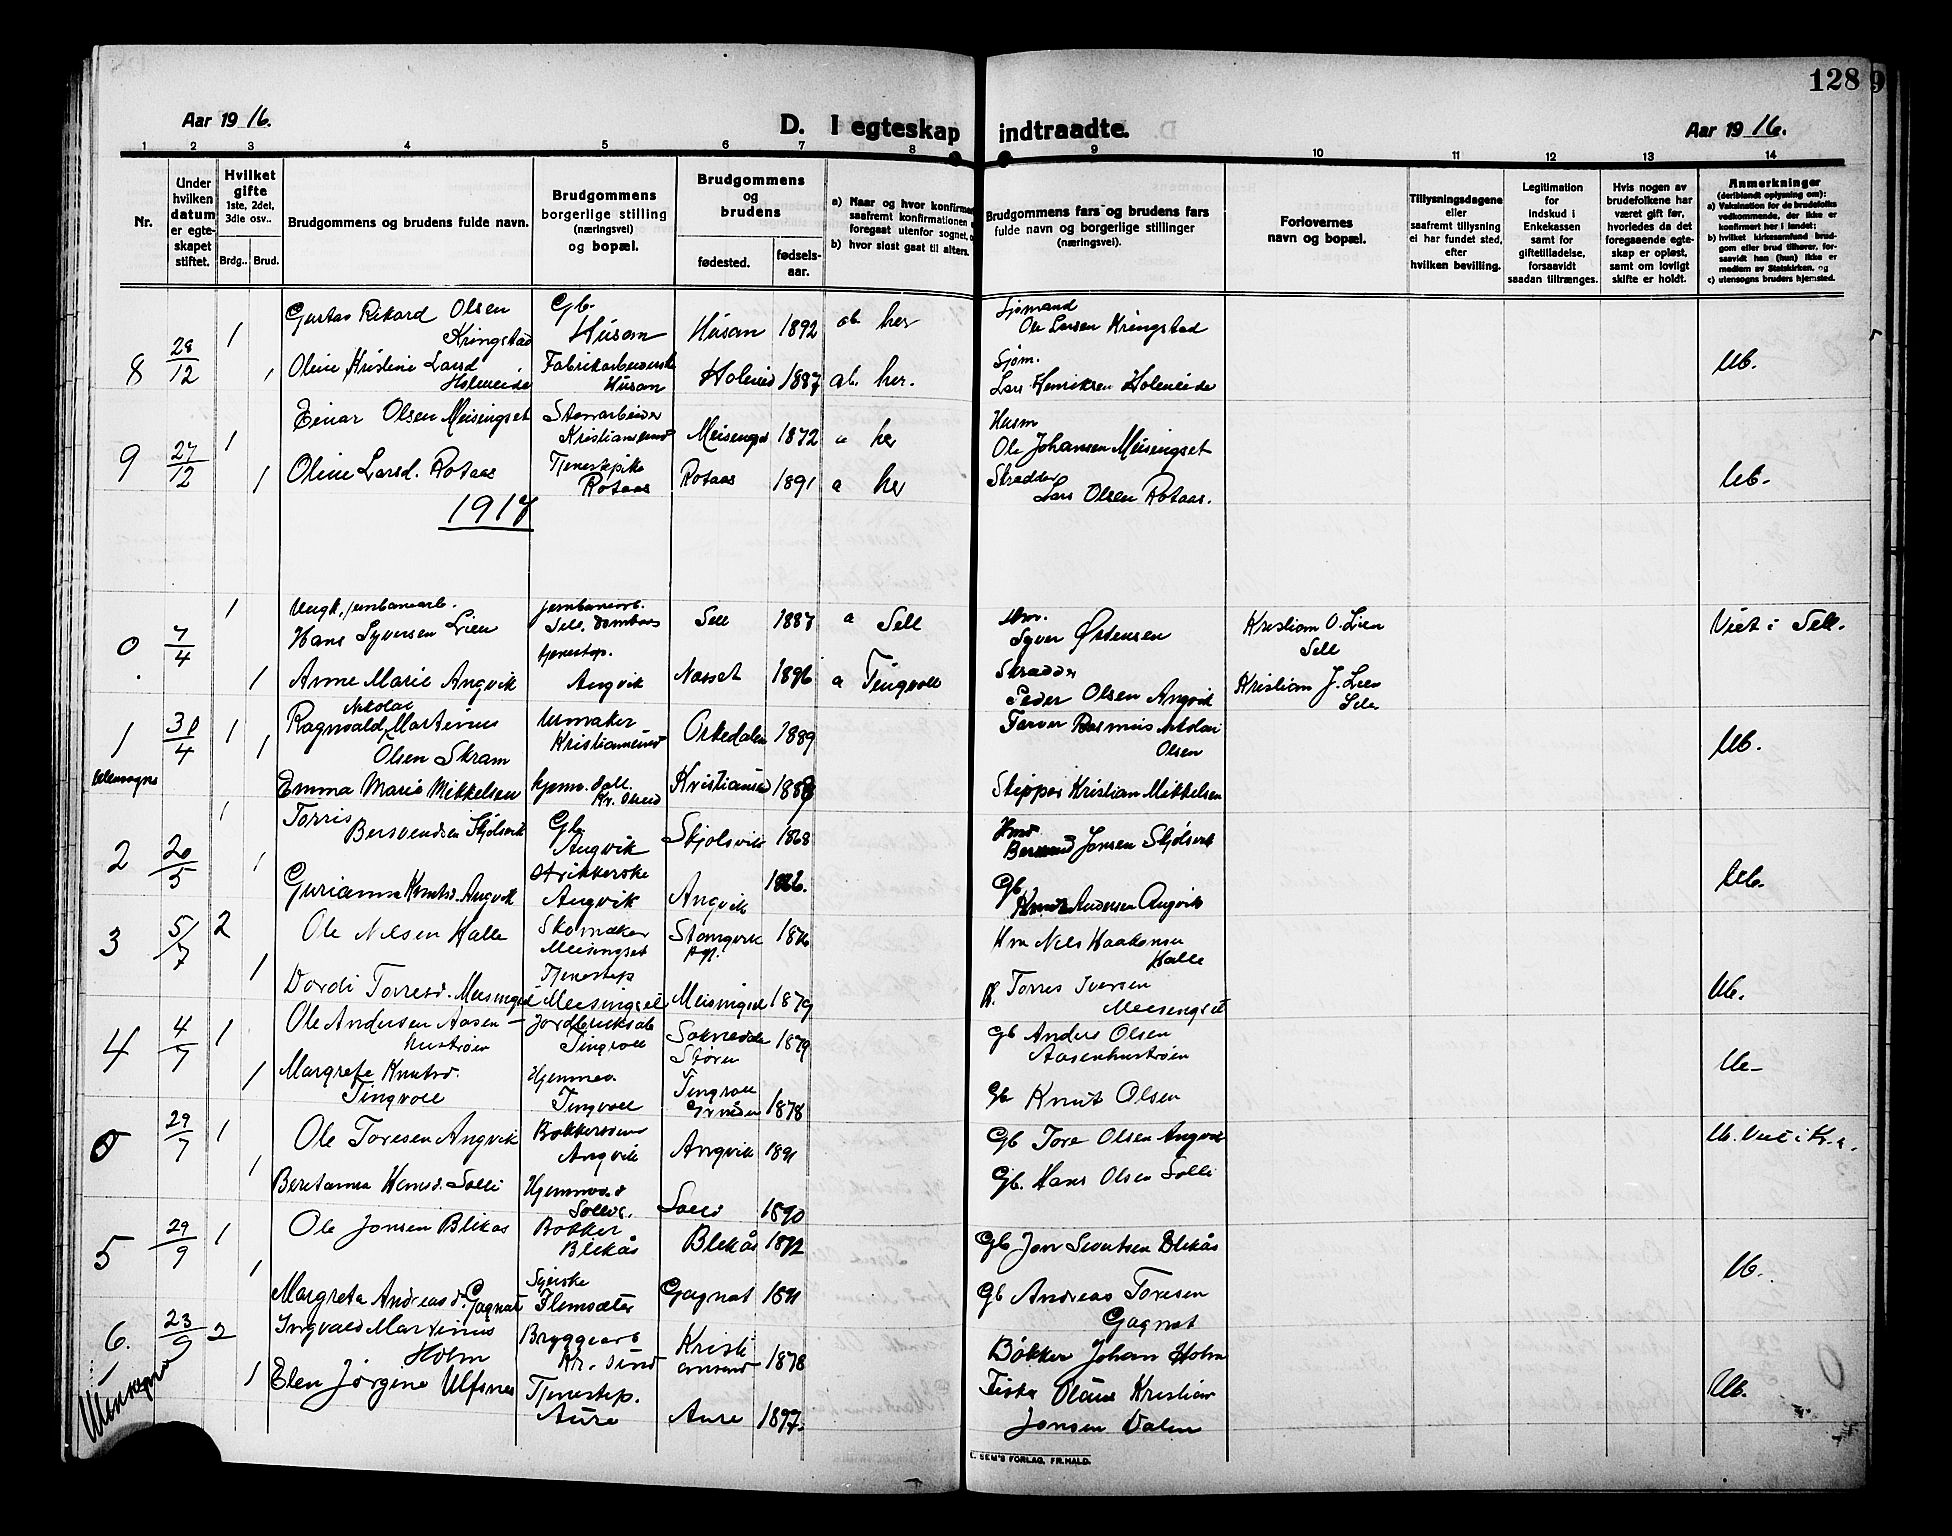 128 9
Aar 1916.
D. I egteskap indtraadte.
Aar 1916.
1 2 3 4 5 6 7 8 9 10 11 12 13 14
Nr.
Under hvilken datum er egteskapet stiftet.
Hvilket gifte 1ste, 2det, 3die osv..
Brdg.. Brud.
Brudgommens og brudens fulde navn.
Brudgommens borgerlige stilling (næringsvei) og bopæl.
Brudgommens og brudens
fødested. fødselsaar.
a) Naar og hvor konfirmer
saafremt konfirmationen
foregaat utenfor sognet,
b) hvor sidst gaat til alters.
Brudgommens fars og brudens fars
fulde navn og borgerlige stillinger
(næringsvei).
Forlovernes
navn og bopæl.
Tillysningsdagene
eller
saafremt tillysning
ei har fundet sted,
efter
hvilken bevilling.
Legitimation
for
indskud i
Enkekassen
samt for
giftetilladelse,
forsaavidt
saadan tiltrænges.
Hvis nogen av
brudefolkene har
været gift før,
hvorledes da det
foregaaende egte-
skap er opløst,
samt om lovligt
skifte er holdt.
Anmerkninger
(deriblandt oplysning om):
a) Vaksination for de brudefolks
vedkommende, der ikke er
konfirmert her i landet;
b) hvilket kirkesamfund brud-
gom eller brud tilhører, for-
saavidt han (hun) ikke er
medlem av Statskirken, og
c) utensogns bruders hjemsted.
8 28/12 1 Gustav Rikard Olsen Kringstad Gb. Husan Husan 1892 ab her Sjømand Ole Larsen Kringstad
1 Oline Kristine Larsd Holmeide Fabrikarbeiderske Husan Holmeid 1887 ab. her. Sjøm. Lars Henriksen Holmeide Ub.
9 27/12 1 Einar Olsen Meisingset Stenarbeider Kristiansund Meisingset 1872 a her Husm Ole Johansen Meisingset
1 Oline Larsd. Rotaas Tjenestepike Rotaas Rotaas 1891 a her Skrædder Lars Olsen Rotaas. Ub.
1917
0 7/4 1 Ungk. jernbanearb. Hans Syversen Lien jernbanearb. Sell. Dombaas Sell 1887 a Sell Syver Østensen Kristian O. Lien Sell Viet i Sell.
1 Anne Marie Angvik tjenestep. Angvik Nesset 1896 a Tingvoll Skrædder Peder Olsen Angvik Kristian J. Lien Sell
1 30/4 1 1 Ragnvald Nikolai Martinus Olsen Skram Urmaker Kristiansund Orkedalen 1889 Farver Rasmus Nikolai Olsen Ub.
Utensogns
Emma Marie Mikkelsen hjemv. datt. Kr. sund Kristiansund 1888 Skipper Kristian Mikkelsen
2 20/5 1 Torris Bersvendsen Skjølsvik Gb. Angvik Skjølsvik 1868 Bersvend Jonsen Skjølsvik
1 Gurianna Knutsd. Angvik Strikkerske Angvik Angvik 1866. Gb Knut Andersen Angvik Ub.
3 5/7 2 Ole Nilsen Halle Skomaker Meisingset Stangvik 1876 Hm Nils Haakonsen Halle
1 Dordi Torresd. Meisingset Tjenestep Meisingset Meisingset 1879 Torres Iversen Meisingset Ub.
4 4/7 1 Ole Andersen Aasenhustrøen Tingvoll Soknedal Støren 1879 Gb Anders Olsen Aasenhustrøen
1 Margrete Knutsd. Tingvoll Hjemmev. Tingvoll Tingvoll 1878 Gb Knut Olsen Ub
5 29/7 1 Ole Toresen Angvik Bøkkersvend Angvik Angvik 1891 Gb Tore Olsen Angvik Ub. Viet i Kr.a.
1 Beretanna Hansd. Solli Hjemmev. Solli 1890 Gb. Hans Olsen Solli
5 29/9 1 Ole Jonsen Blikås Bøkker Blekås Blekås 1892 Gb Jon Sivertsen Blekås
1 Margreta Andreasd. Gagnat Syerske Flemsæter Gagnat 1891 Gb Andreas Toresen Gagnat Ub.
6. 23/9 2 Ingvald Martinus Holm Bryggearb Kr. sund Kristiansund 1878 Bøkker Johan Holm
Utensogns
1 Elen Jørgine Ulfsnes Tjenestep. Aure Aure 1897. Fisker Olaus Kristian Jonsen Dalen Ub.
SEM'S FORLAG, FR.HALD.